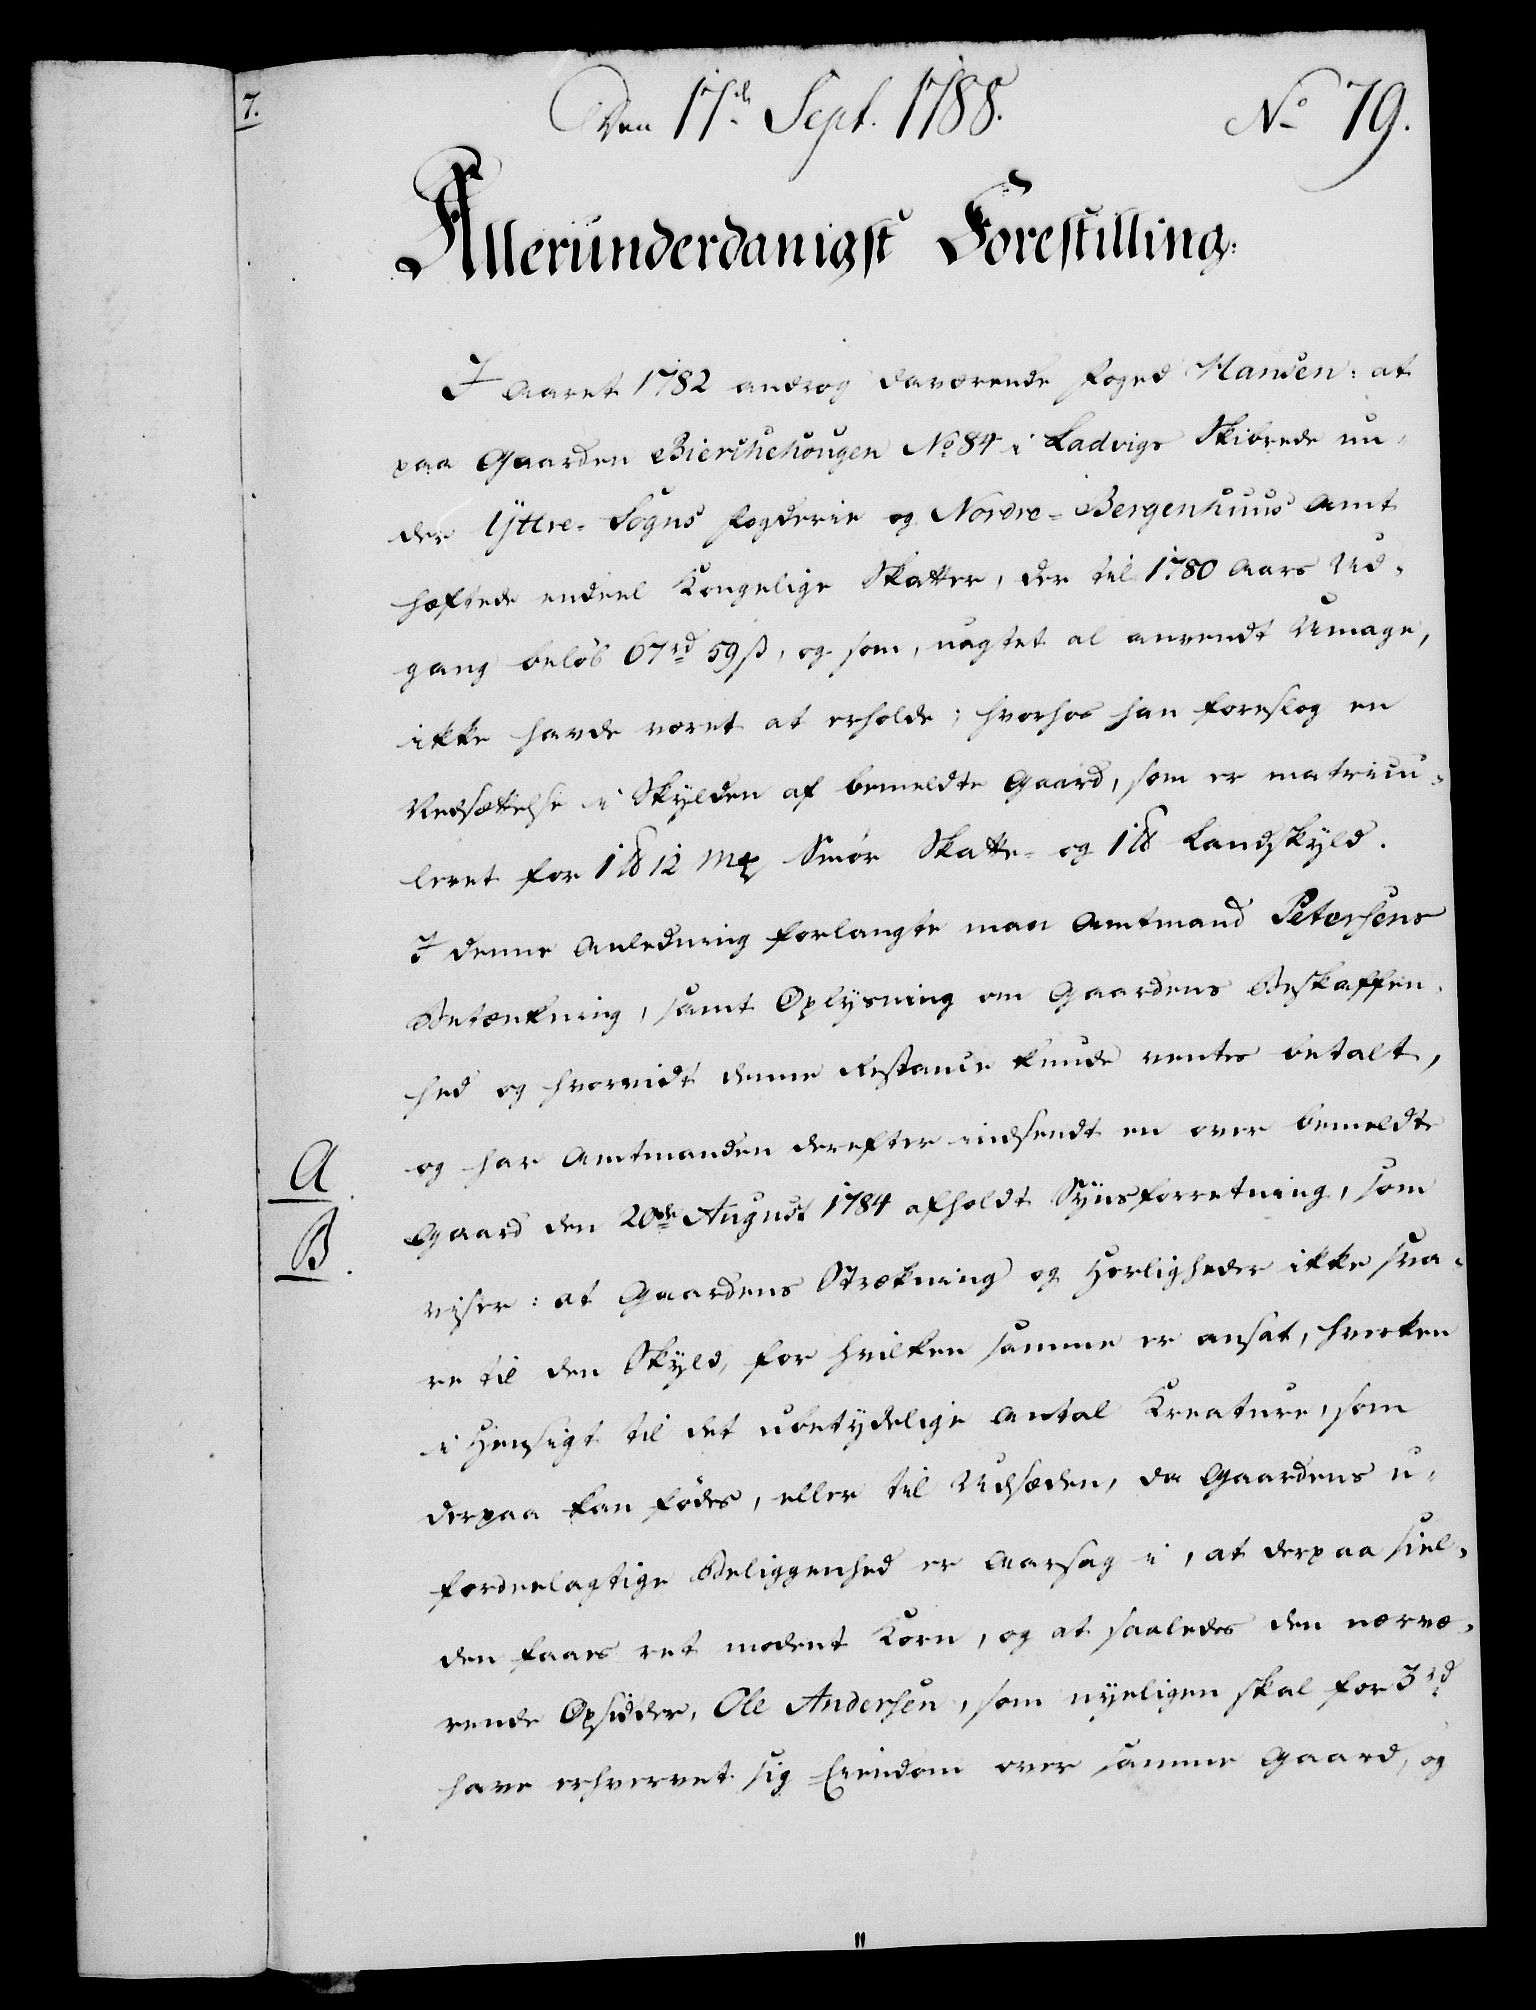 7.
Den 17de Sept. 1788.
No 79.
Allerunderdanigst Forestilling:
I Aaret 1782 androg daværende Foged Hansen: at
paa Gaarden Bierchehougen No 84 i Ladvigs Skibrede un-
der Ÿttre-Sogns Fogderie og Nordre-Bergenhuus Amt
hæftede endeel Kongelige Skatter, der til 1780 Aars Ud-
gang beløb 67rd 59ß, og som, uagtet al anvendt Umage,
ikke havde været at erholde; hvorhos han foreslog en
Nedsættelse i Skylden af bemeldte Gaard, som er matricu-
leret for 1 ℔ 12 mℓ Smør Skatte- og 1 ℔ Landskyld.
I denne Anledning forlangte man Amtmand Petersens
Betænkning, samt Oplysning om Gaardens Beskaffen-
hed og hvorvidt denne Restance kunde ventes betalt,
A.
og har Amtmanden derefter indsendt en over bemeldte
B.
Gaard den 20de August 1784 afholdt Synsforretning, som
viser: at Gaardens Strækning og Herligheder ikke sva-
re til den Skyld, for hvilken samme er ansat, hverken
i Hensigt til det ubetydelige Antal Kreature, som
derpaa kan fødes, eller til Udsæden, da Gaardens u-
fordeelagtige Beliggenhed er Aarsag i, at derpaa siel-
den faaes ret modent Korn, og at saaledes den nærvæ-
rende Opsidder, Ole Andersen, som nyeligen skal for 3rd
have erhvervet sig Eiendom over samme Gaard, og